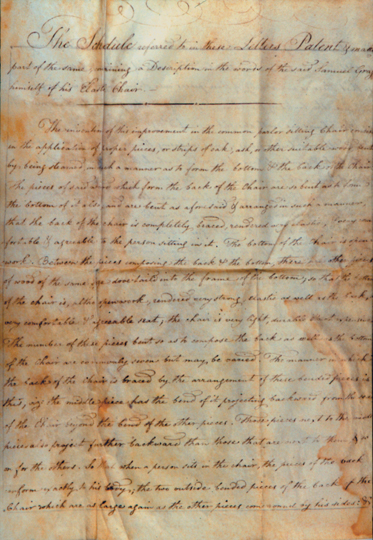 The Schedule referred to in these Letters Patent & making
part of the same, containing a Description in the words of the said Samuel Gragg
himself of his Elastic Chair.
The invention of this improvement in the common parlor sitting Chair consists
in the application of proper pieces, or strips of oak, ash, or other suitable wood,
by being steamed in such a manner as to form the bottom & the back of the Chair.
The pieces of said wood which form the back of the Chair are so bent as to form
the bottom of it also; and are bent as aforesaid & arranged in such a manner,
that the back of the chair is completely braced, rendered very elastic, very com
fortable & agreeable to the person sitting in it. The bottom of the Chair is open
work. Between the pieces composing the back & the bottom, there are other pieces
of wood of the same size into the frame of the bottom, so that the bottom
of the chair is, altho openwork, rendered very strong, elastic as well as the back,
very comfortable & agreeable seat; the chair is very light, durable &
The number of these pieces bent so as to compose the back as well as the bottom
of the chair are commonly seven but may be varied. The manner in which
the back of the chair is braced by the arrangement of these bended pieces is
this, viz, the middle piece has the bend of it projecting backward from the
of the Chair beyond the bend of the other pieces. Those pieces next to the middle
piece also project further backward than those that are next to them & so
on for the others. So that when a person sits in the chair, the pieces of the back
conform exactly to his body; the two outside bended pieces of the back of the
Chair which are as large again as the other pieces come round by his sides